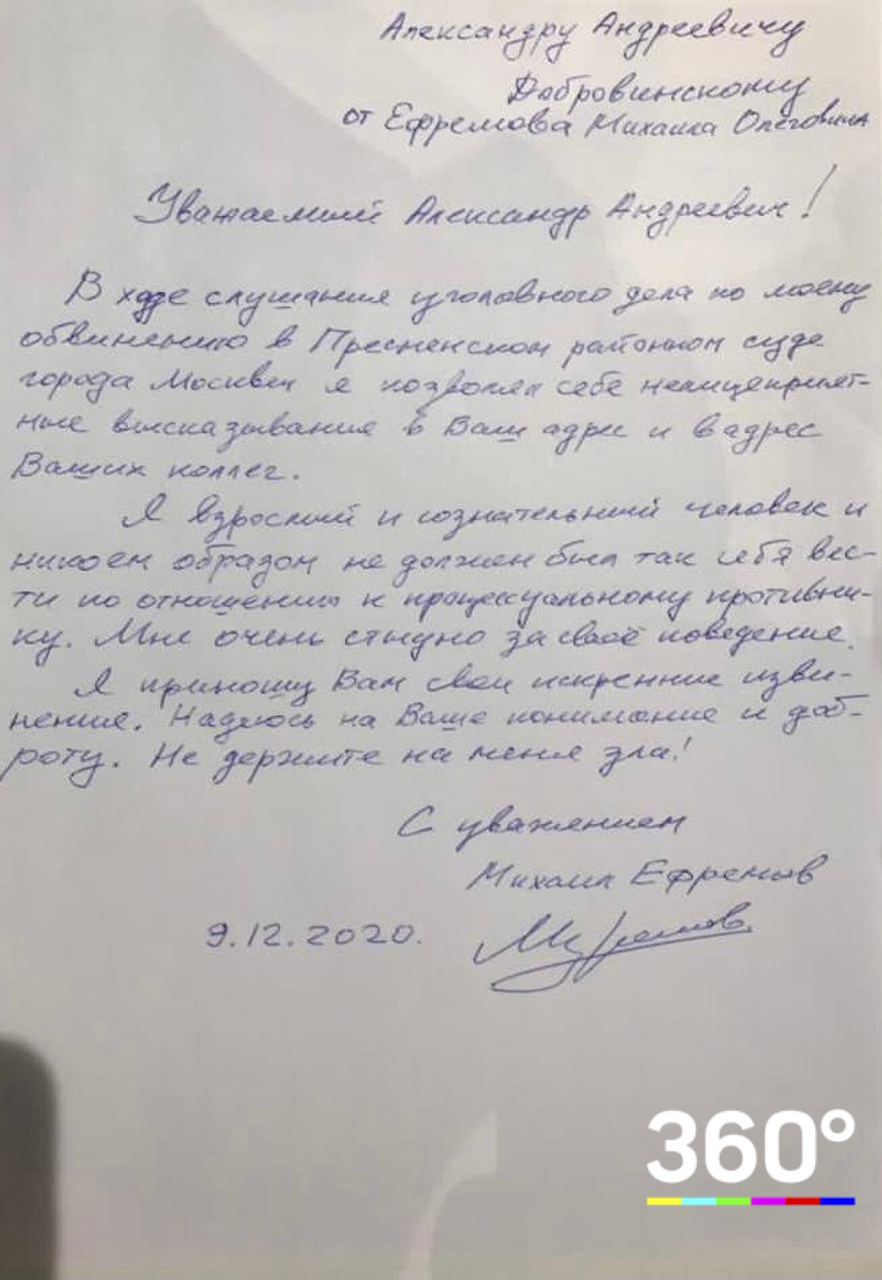 Александру Андреевичу
Добровинскому
от Ефремова Михаила Олеговича
Уважаемый Александр Андреевич!
В ходе слушания уголовного дела по моему
обвинению в Пресненском районном суде
города Москвы я позволял себе нелицеприят-
ные высказывания в Ваш адрес и в адрес
Ваших коллег.
Я взрослый и сознательный человек и
никоем образом не должен был так себя вес-
ти по отношению к процессуальному противни-
ку. Мне очень стыдно за своё поведение.
Я приношу Вам свои искренние изви-
нения. Надеюсь на Ваше понимание и доб-
роту. Не держите на меня зла!
С уважением
Михаил Ефремов
9.12.2020.
360°